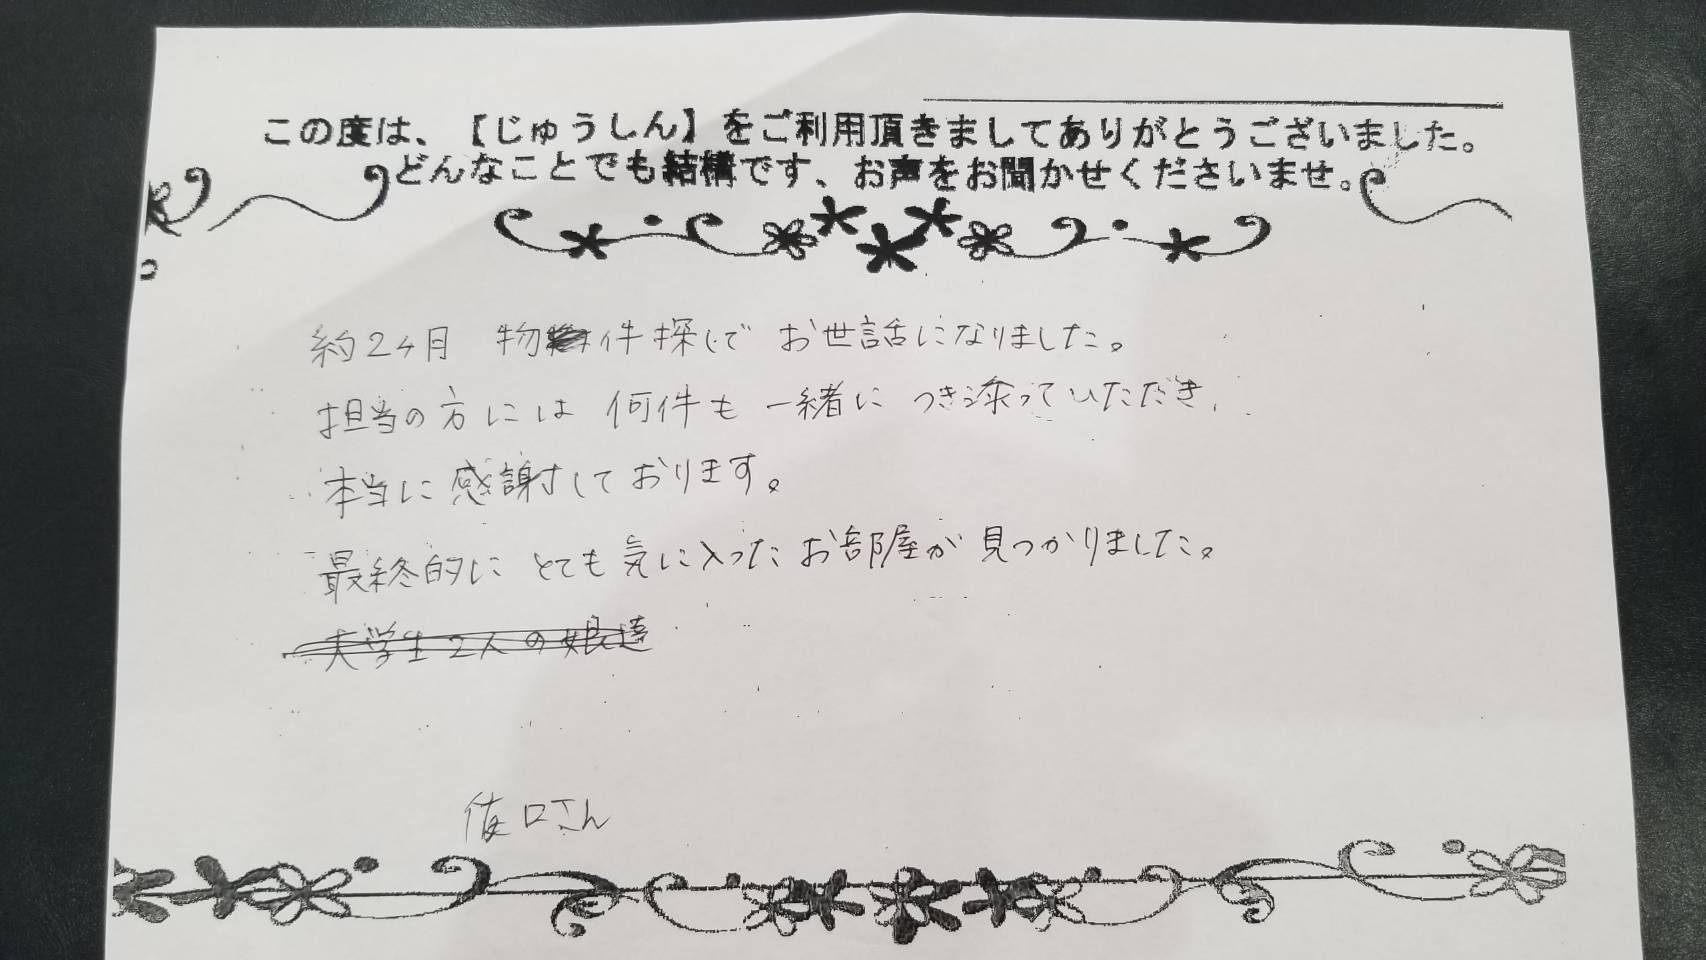 この度は、【じゅうしん】をご利用頂きましてありがとうございました。
どんなことでも結構です、お声をお聞かせくださいませ。
約2ヶ月 物件探しで お世話になりました。
担当の方には 何件も 一緒に つき添っていただき、
本当に感謝しております。
最終的に とても気に入ったお部屋が 見つかりました。
大学生2人の娘達
口さん